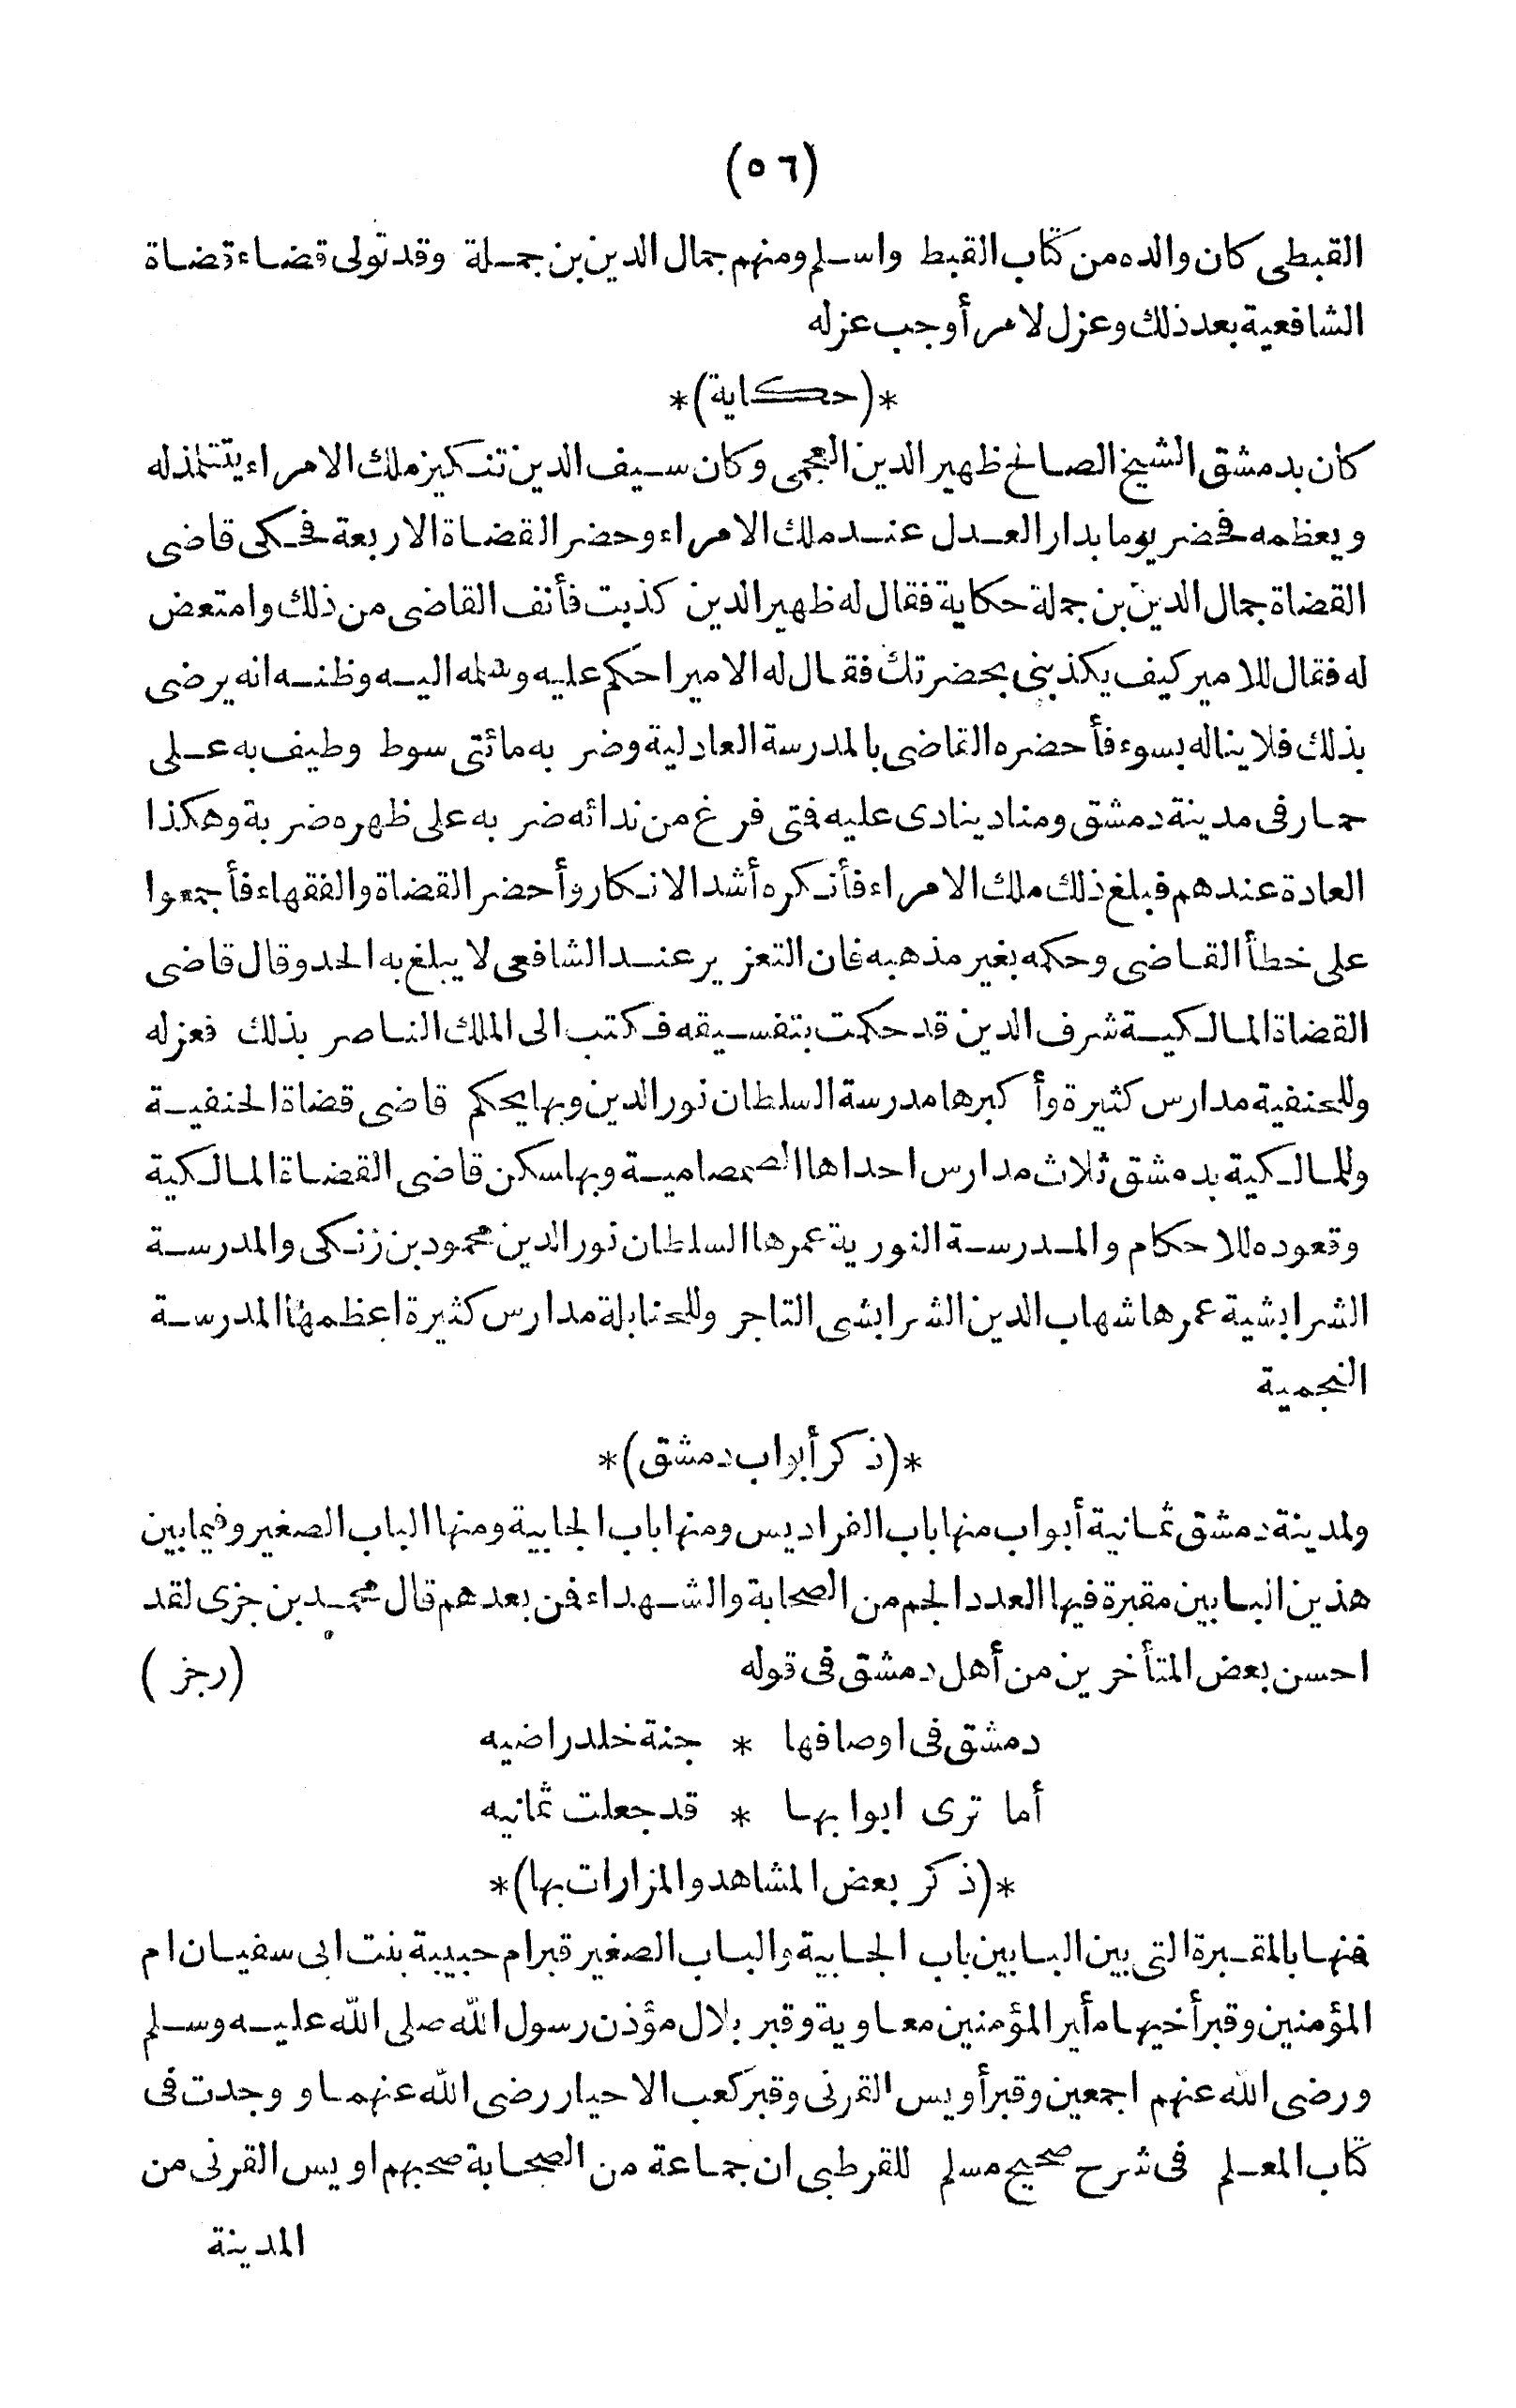 (٥٦)
القبطى كان والده من كتّاب القبط واسلم ومنهم جمال الدين بن جملة وقد تولى قضاء قضاة
الشافعية بعد ذلك وعزل لامر أوجب عزله
*(حكاية)*
كان بدمشق الشيخ الصالح ظهير الدين العجمى وكان سيف الدين تنكيز ملك الامراء يتتلمذ له
ويعظمه فحضر يوما بدار العدل عند ملك الامراء وحضر القضاة الاربعة فحكى قاضى
القضاة جمال الدين بن جملة حكاية فقال له ظهير الدين كذبت فأنف القاضى من ذلك وامتعض
له فقال للامير كيف يكذبنى بحضرتك فقال له الامير احكم عليه وسلمه اليه وظنه انه يرضى
بذلك فلا يناله بسوء فأحضره القاضى بالمدرسة العادلية وضربه مائتى سوط وطيف به على
حمار فى مدينة دمشق ومناد ينادى عليه فتى فرغ من ندائه ضربه على ظهره ضربة وهكذا
العادة عندهم فبلغ ذلك ملك الامراء فأنكره أشد الانكار وأحضر القضاة والفقهاء فأجمعوا
على خطأ القاضى وحكمه بغير مذهبه فان التعزير عند الشافعى لا يبلغ به الحد وقال قاضى
القضاة المالكية شرف الدين قد حكمت بتفسيقه فكتب الى الملك الناصر بذلك فعزله
وللحنفية مدارس كثيرة وأكبرها مدرسة السلطان نور الدين وبها يحكم قاضى قضاة الحنفية
وللمالكية بدمشق ثلاث مدارس احداها الصمصامية وبها سكن قاضى القضاة المالكية
وقعوده للاحكام والمدرسة النورية عمرها السلطان نور الدين محمود بن زنكى والمدرسة
الشرابشية عمرها شهاب الدين الشرابشى التاجر وللحنابلة مدارس كثيرة اعظمها المدرسة
النجمية
*(ذكر أبواب دمشق)*
ولمدينة دمشق ثمانية أبواب منها باب الفراديس ومنها باب الجابية ومنها الباب الصغير وفيما بين
هذين البابين مقبرة فيها العدد الجم من الصحابة والشهداء فمن بعدهم قال محمد بن جزى لقد
احسن بعض المتأخرين من أهل دمشق فى قوله (رجز)
دمشق فى اوصافها * جنة خلد راضيه
أما ترى ابوابها * قد جعلت ثمانيه
*(ذكر بعض المشاهد والمزارات بها)*
فنها بالمقبرة التى بين البابين باب الجابية والباب الصغير قبر ام حبيبة بنت ابى سفيان ام
المؤمنين وقبر أخيها مأير المؤمنين معاوية وقبر بلال مؤذن رسول الله صلى الله عليه وسلم
ورضى الله عنهم اجمعين وقبر أويس القرنى وقبر كعب الاحبار رضى الله عنهما ووجدت فى
كتّاب المعلم فى شرح صحيح مسلم للقرطبى ان جماعة من الصحابة صحبهم اويس القرنى من
المدينة